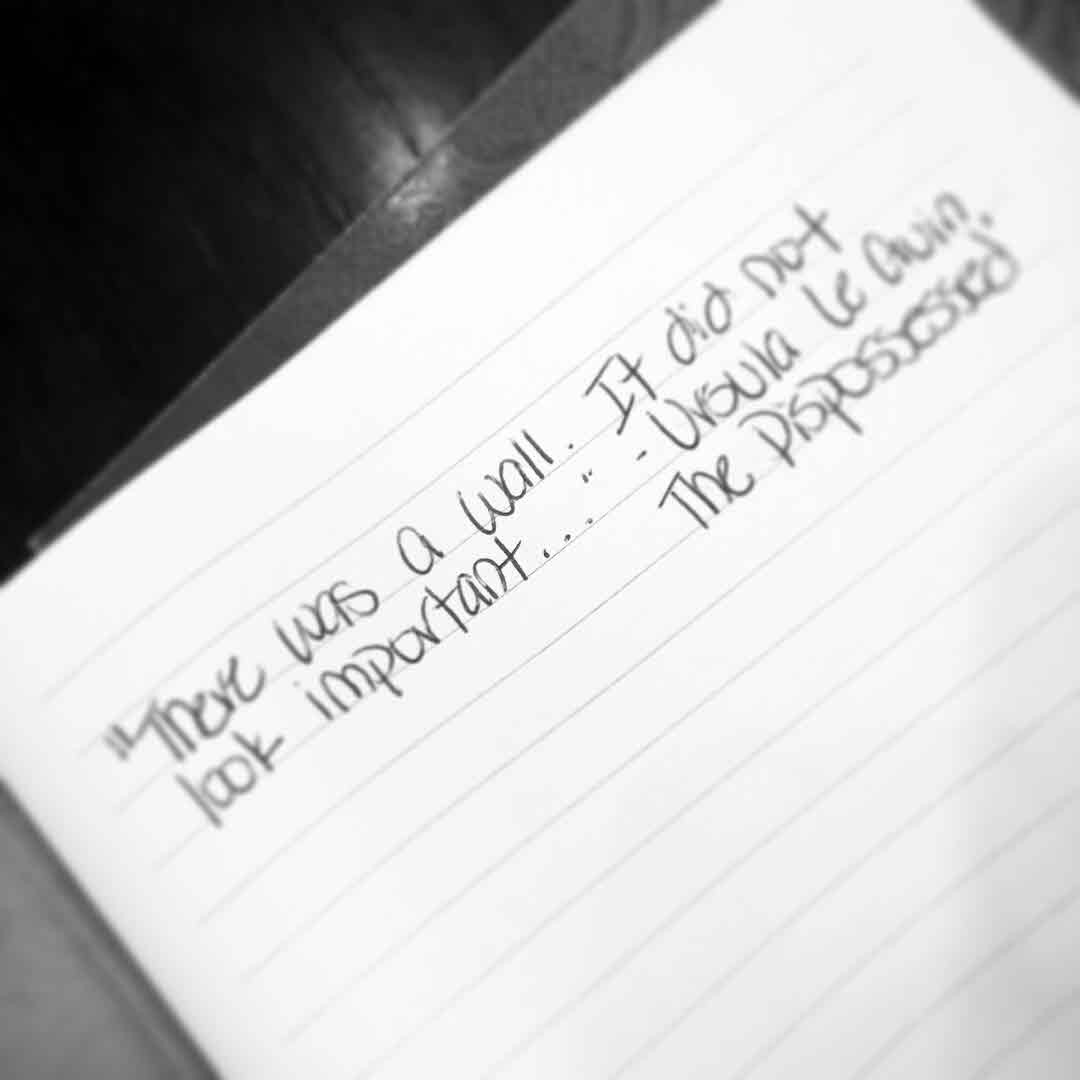 "There was a wall. It did not
look important..." - Ursula Le Guin,
The Dispossessed"